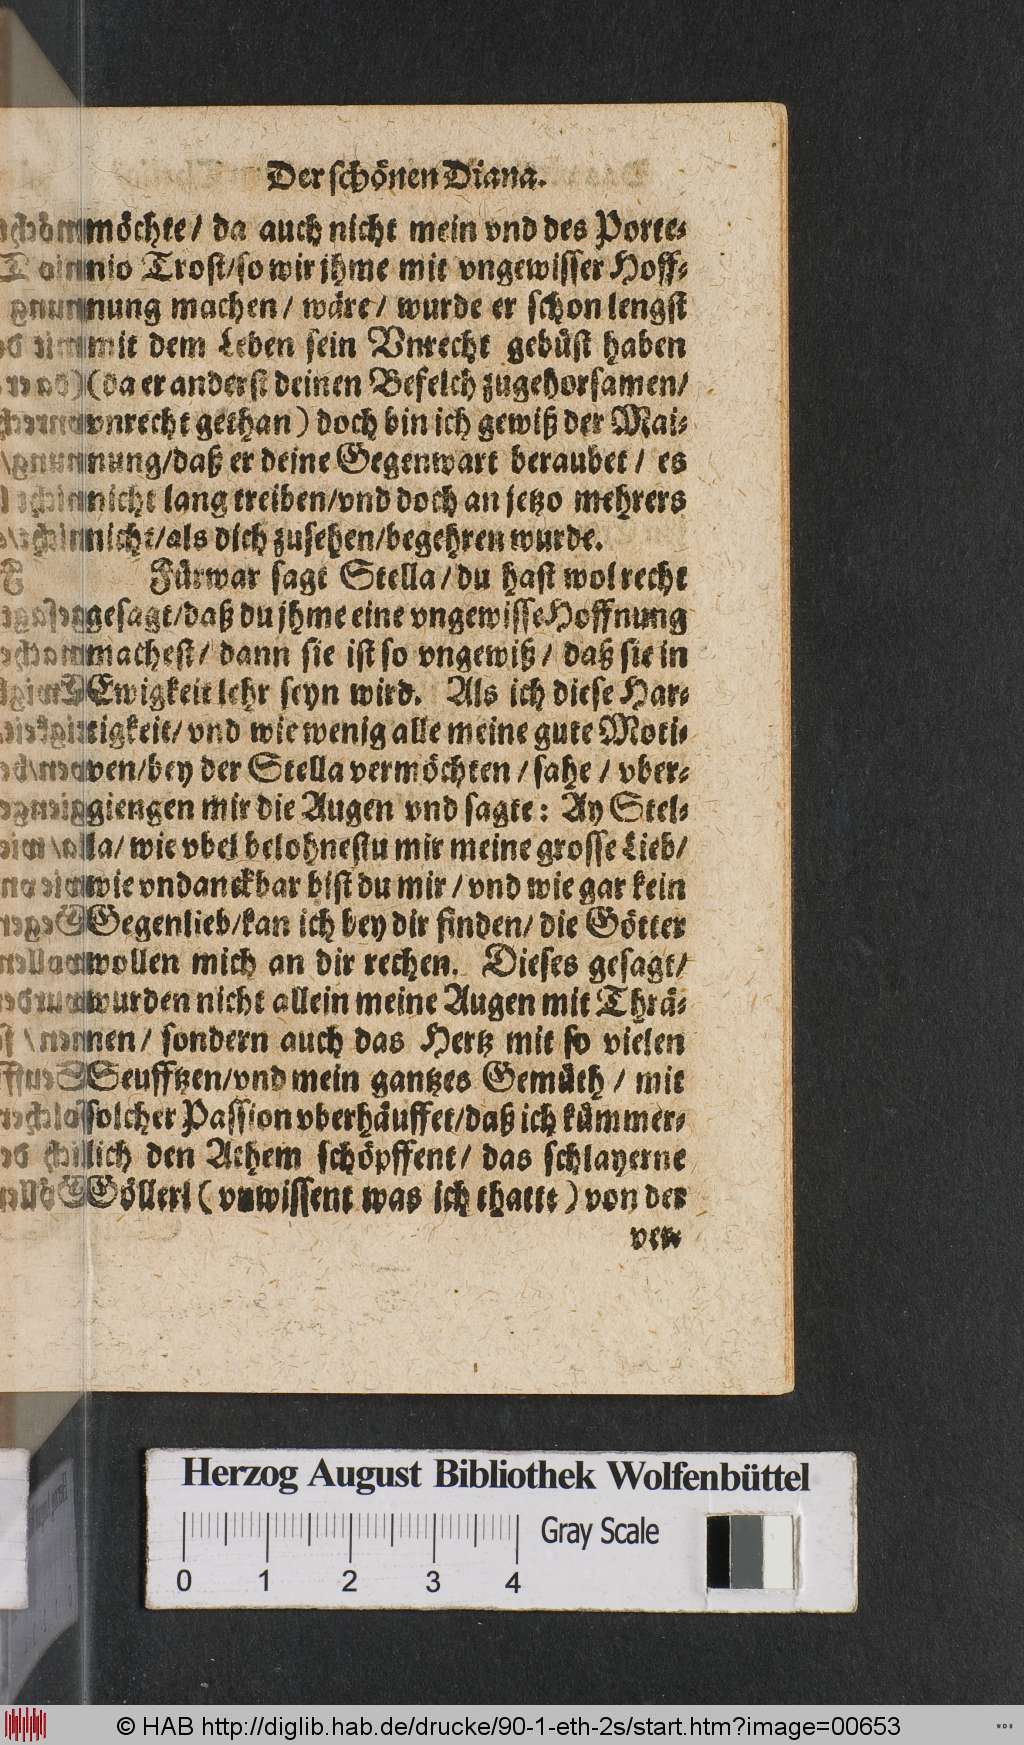 Der schönen Diana.
möchte/ da auch nicht mein vnd des Porte-
nio Trost/so wir jhme mit vngewisser Hoff-
nung machen/ wäre/ wurde er schon lengst
mit dem Leben sein Vnrecht gebüst haben
(da er anderst deinen Befelch zugehorsamen/
vnrecht gethan) doch bin ich gewiß der Mai-
nung/daß er deine Gegenwart beraubet/ es
nicht lang treiben/vnd doch an jetzo mehrers
nicht/als dich zusehen/begehren wurde.
Fürwar sagt Stella/du hast wol recht
gesagt/daß du jhme eine vngewisse Hoffnung
machest/ dann sie ist so vngewiß/ daß sie in
Ewigkeit lehr seyn wird. Als ich diese Har-
tigkeit/ vnd wie wenig alle meine gute Moti-
ven/bey der Stella vermöchten/sahe/ vber-
giengen mir die Augen vnd sagte: Ay Stel-
la/ wie vbel belohnestu mir meine grosse Lieb/
wie vndanckbar bist du mir/ vnd wie gar kein
Gegenlieb/kan ich bey dir finden/ die Götter
wollen mich an dir rechen. Dieses gesagt/
wurden nicht allein meine Augen mit Thrä-
nen/ sondern auch das Hertz mit so vielen
Seufftzen/vnd mein gantzes Gemüth/ mit
solcher Passion vberhäuffet/daß ich kümmer-
lich den Athem schöpffent/ das schlayerne
Göllerl (vnwissent was ich thatte) von der
ver-
Herzog August Bibliothek Wolfenbüttel
Gray Scale
0 1 2 3 4
© HAB http://diglib.hab.de/drucke/90-1-eth-2s/start.htm?image=00653